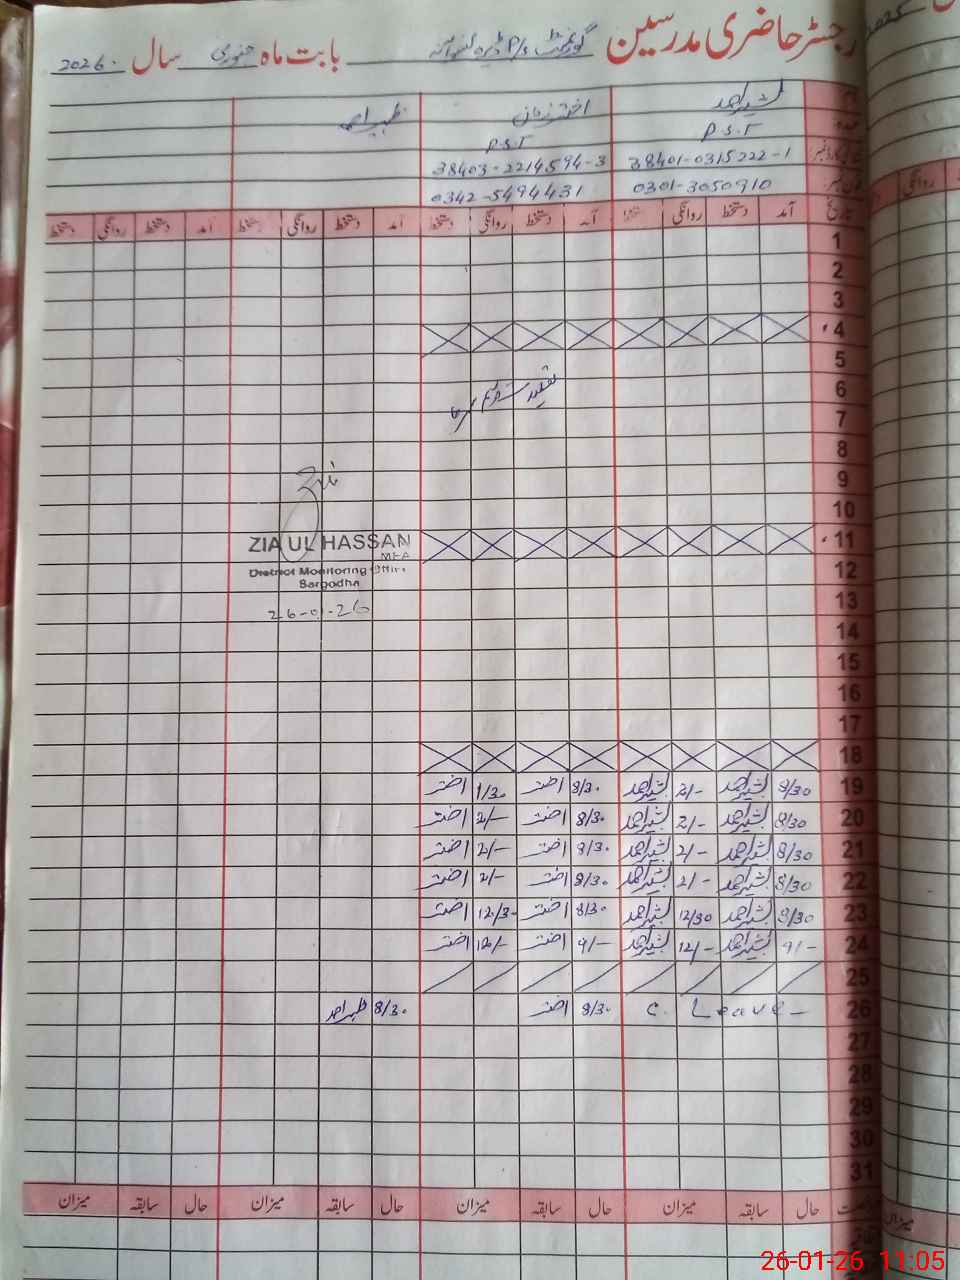 رجسٹر حاضری مدرسین گورنمنٹ P/S بابت ماہ جنوری سال 2026
2025
بشیر احمد اختر زمان ظہیر احمد
P.S.T P.S.T
38401-0315222-1 38403-2214594-3
0301-3050910 0342-5494431
تاریخ آمد دستخط روانگی دستخط آمد دستخط روانگی دستخط آمد دستخط روانگی دستخط آمد دستخط روانگی دستخط
روانگی
1
2
3
4
5
6
7
8
9
10
11
ZIA UL HASSAN
MEA
District Monitoring Office
Sargodha
26-01-26
12
13
14
15
16
17
18
19 8/30 بشیر احمد 2/- بشیر احمد 8/30 اختر 1/30 اختر
20 8/30 بشیر احمد 2/- بشیر احمد 8/30 اختر 2/- اختر
21 8/30 بشیر احمد 2/- بشیر احمد 8/30 اختر 2/- اختر
22 8/30 بشیر احمد 2/- بشیر احمد 8/30 اختر 2/- اختر
23 8/30 بشیر احمد 12/30 بشیر احمد 8/30 اختر 12/30 اختر
24 9/- بشیر احمد 12/- بشیر احمد 9/- اختر 12/- اختر
25
26 C. Leave - 8/30 اختر 8/30 ظہیر احمد
27
28
29
30
31
حال سابقہ میزان حال سابقہ میزان حال سابقہ میزان حال سابقہ میزان
میزان
26-01-26 11:05